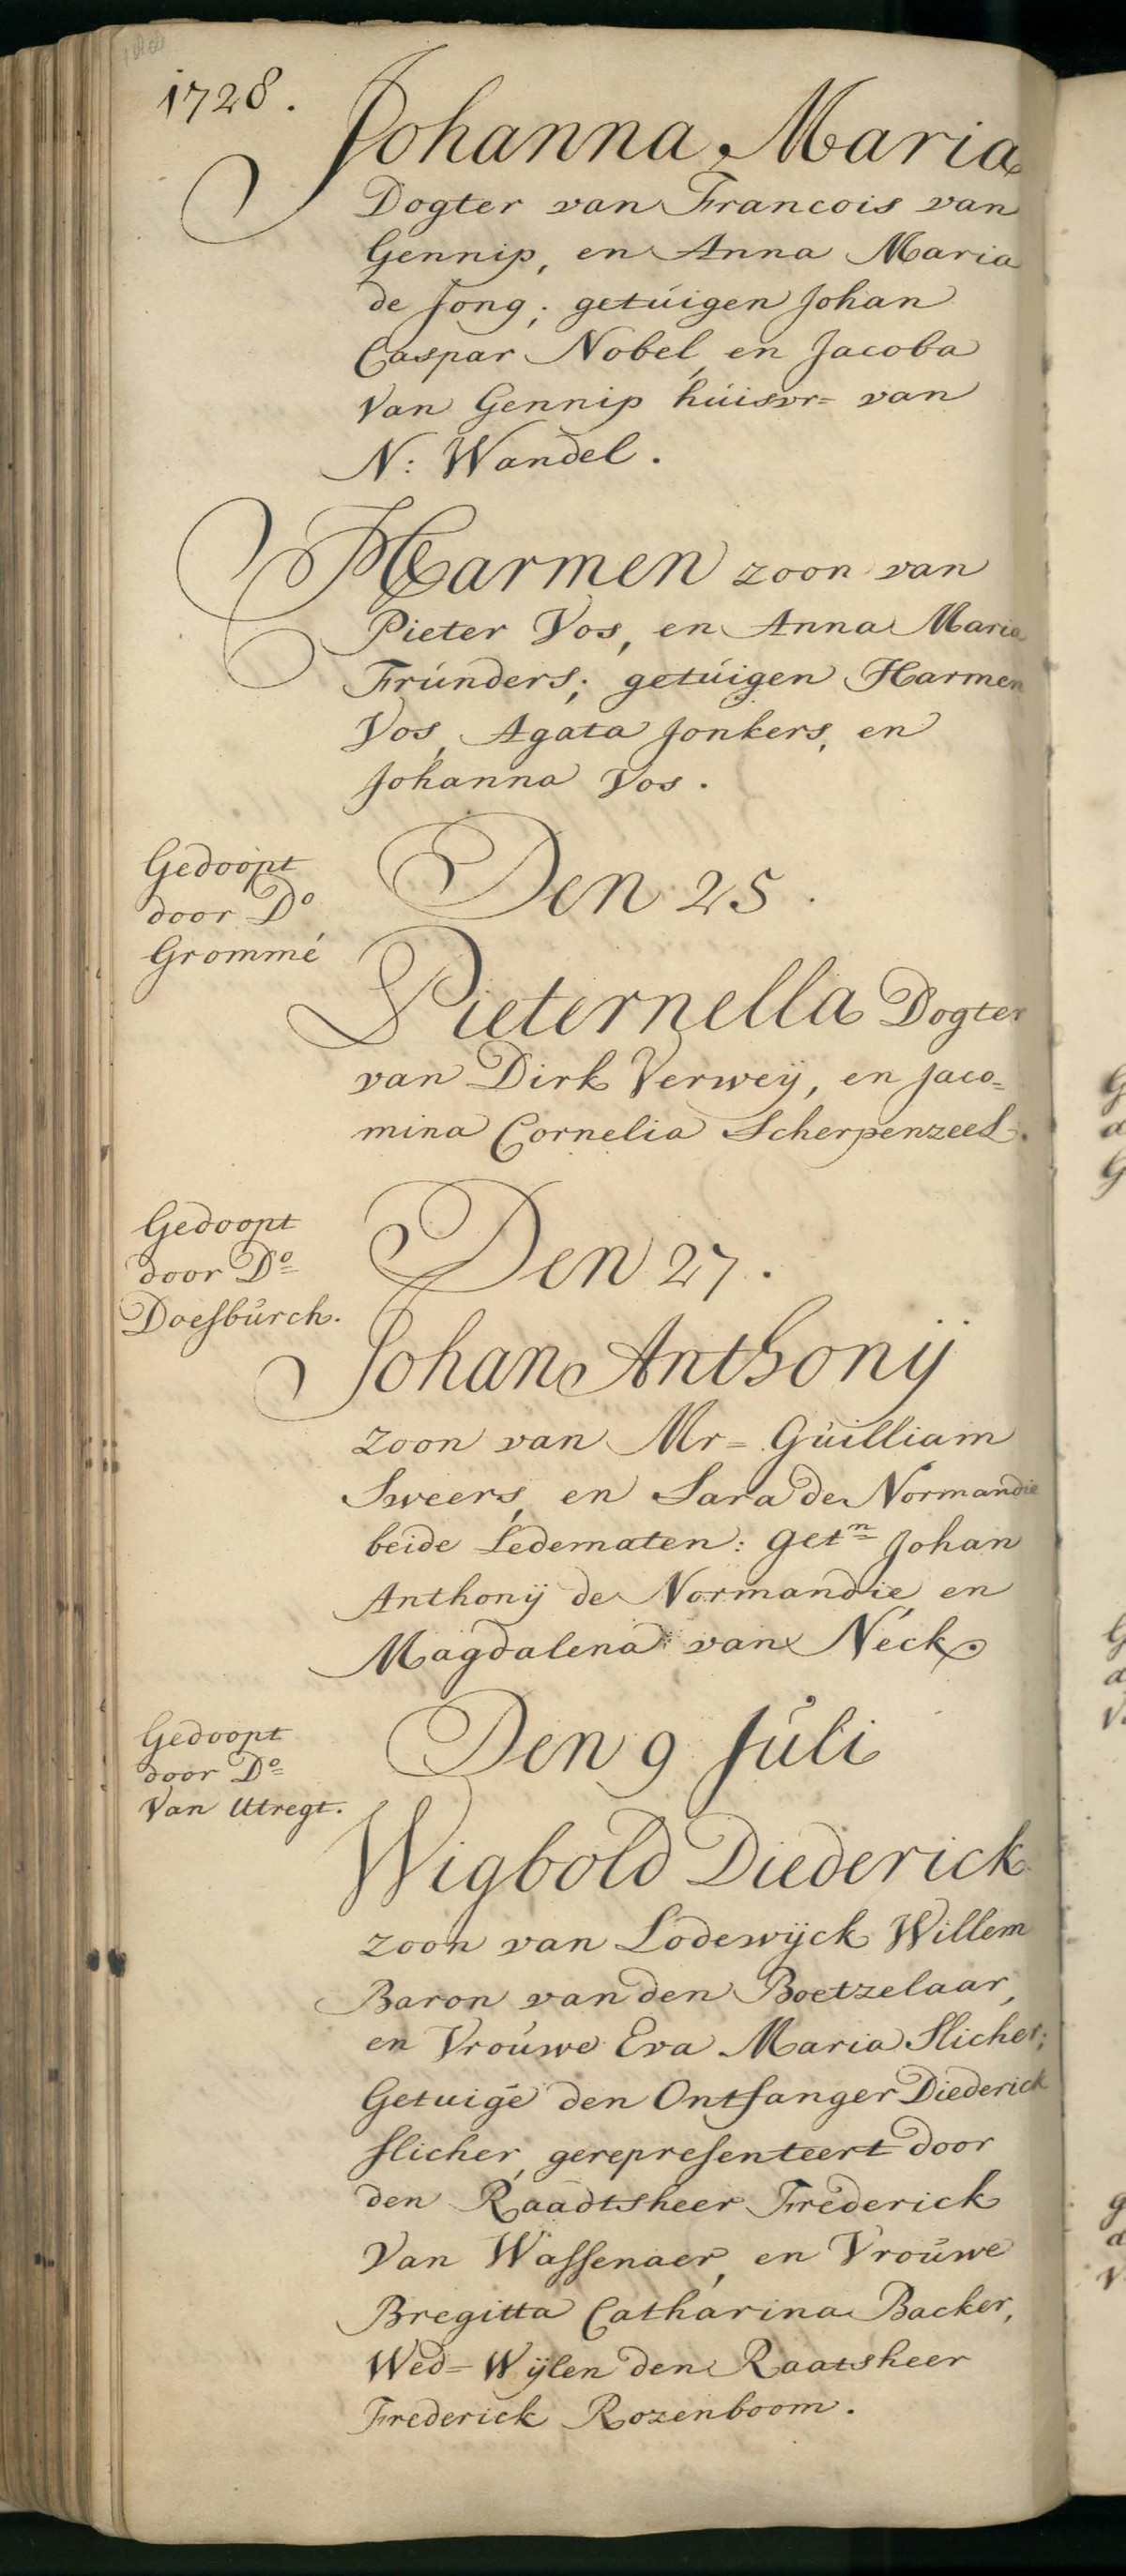 1728.
Johanna Maria
Dogter van Francois van
Gennip, en Anna Maria
de Jong; getúigen Johan
Caspar Nobel, en Jacoba
Van Gennip húisvr= van
N: Wandel.
Harmen zoon van
Pieter Vos, en Anna Maria
Frúnders; getúigen Harmen
Vos, Agata Jonkers, en
Johanna Vos.
Gedoopt
door Do
Grommé
Den 25.
Pieternella Dogter
van Dirk Verweij, en Jaco=
mina Cornelia Scherpenzeel.
Gedoopt
door Do
Doesbúrch.
Den 27.
Johan Anthonij
zoon van Mr= Gúilliam
Sweers, en Sara de Normandie
beide Ledematen: getn Johan
Anthonij de Normandie en
Magdalena van Neck.
Gedoopt
door Do
Van Utregt.
Den 9 Júli
Wigbold Diederick
zoon van Lodewijck Willem
Baron van den Boetzelaar,
en Vroúwe Eva Maria Slicher;
Getuige den Ontfanger Diederick
Slicher, gerepresenteert door
den Raadtsheer Frederick
Van Wassenaer, en Vroúwe
Bregitta Catharina Backer,
Wed= Wijlen den Raatsheer
Frederick Rozenboom.